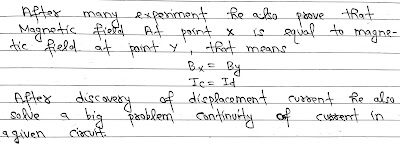 After many experiment he also prove that
Magnetic field At point x is equal to magne-
tic field at point Y, that means
Bx = By
Ic = Id
After discovery of displacement current he also
solve a big problem continuity of current in
a given circuit.